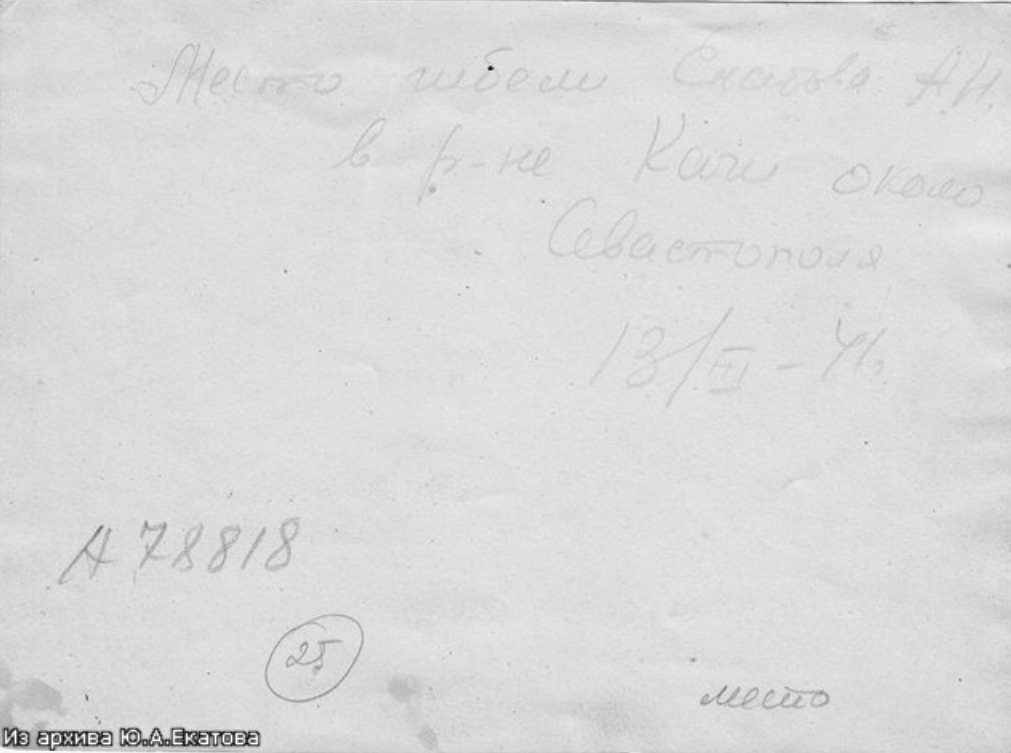 Место гибели Екатова А.И.
в р-не Качи около
Севастополя
13/III - 41г.
А78818
25
место
Из архива Ю.А.Екатова